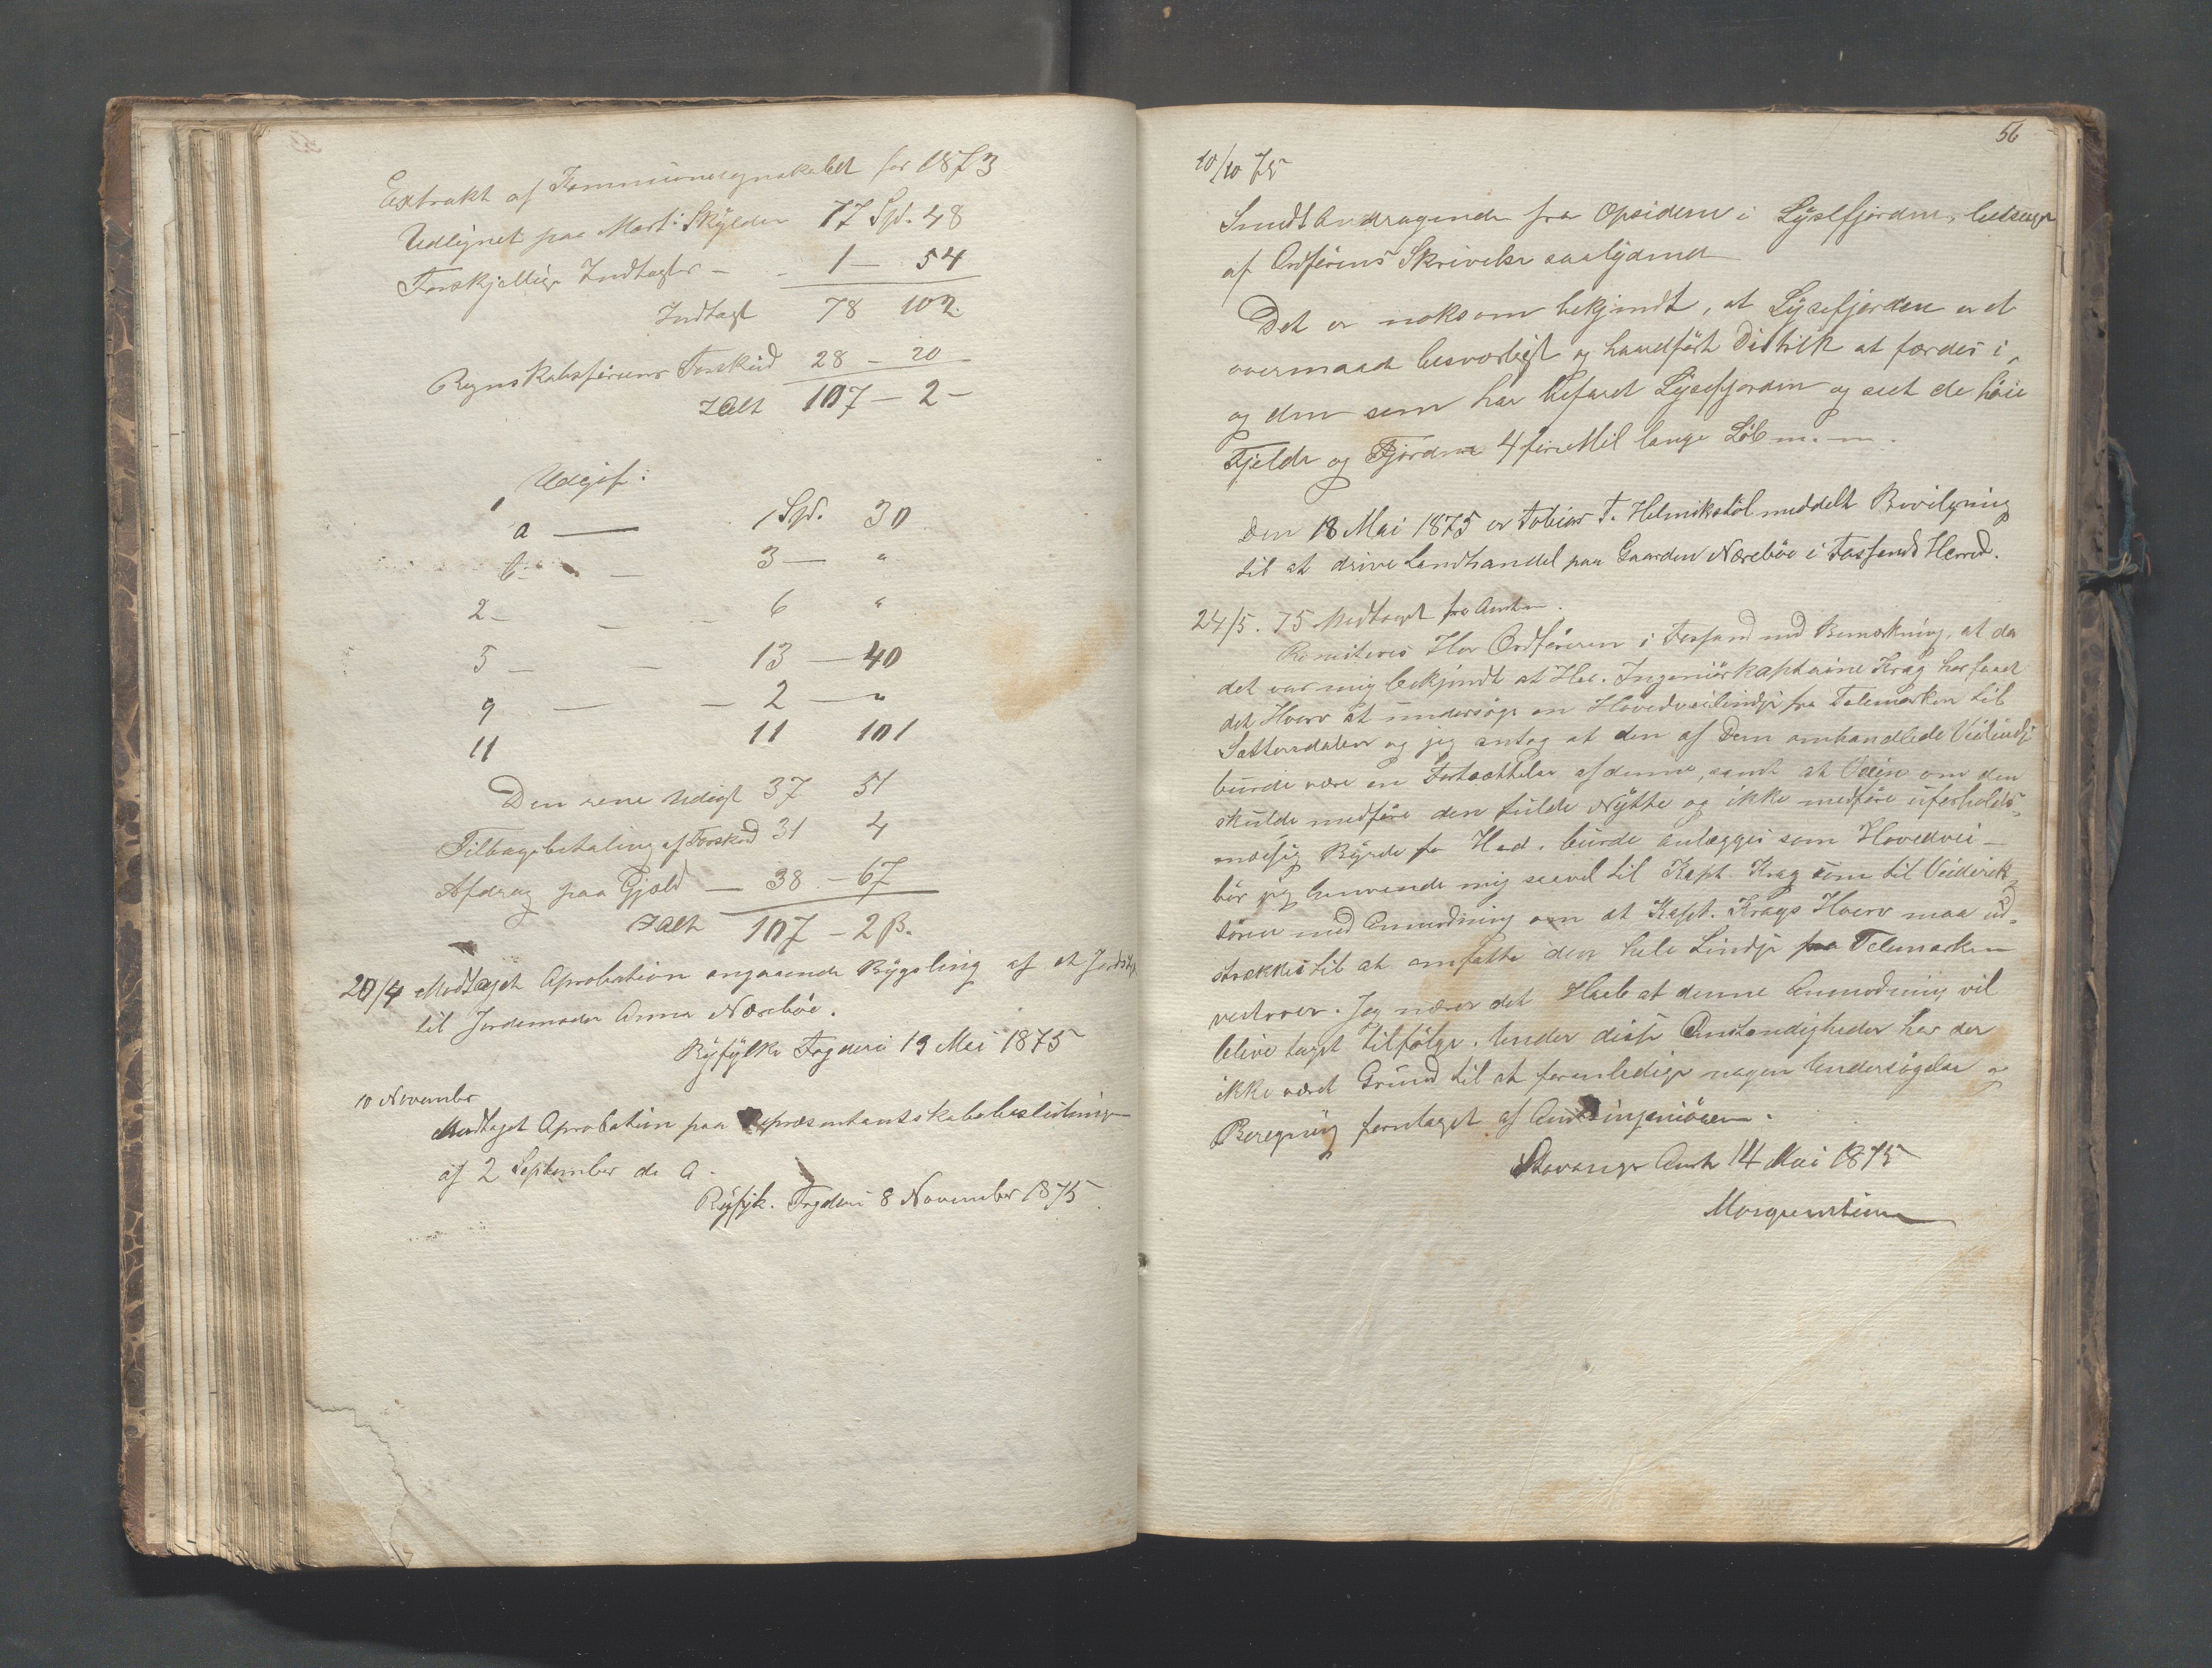 Extrakt af Kommuneregnskabet for 1873
Udlignet paa Mart: Skylden 77 Spd. 48
Forskjellige Indtægter - - 1 - 54
Indtægt 78 102.
Regnskabsførerens Forskud 28 - 20 -
Ialt 107 - 2 -
Udgif:
1 a — 1 Spd. 30
b - - 3 — "
2 - - - 6 "
5 - - 13 — 40
9 — - 2 — "
11 11 101
Den rene Udgift 37 51
Tilbagebetaling af Forskud 31 4
Afdrag paa Gjæld — 38 - 67
Ialt 107 - 2 β.
20/4 Modtaget Aprobation angaaende Bygsling af et Jordstyk
til Jordemoder Anna Nærebøe.
Ryfylke Fogderi 19 Mai 1875
10 November
Modtaget Aprobation paa Repræsentantskabsbeslutninger
af 2 September d. A.
Ryfylk. Fogderi 8 November 1875.
56
10/10 75
Sendt Andragende fra Opsidderne i Lysefjorden, ledsaget
af Ordførens Skrivelse saalydende
Det er noksom bekjendt, at Lysefjorden er et
overmaade besværligt og haardført Distrik at færdes i,
og den som har befaret Lysefjorden og seet de høie
Fjelde og Fjordene 4 fire Mil lange Løb m. m.
Den 18 Mai 1875 er Tobias T. Helmikstøl meddelt Bevilgning
til at drive Landhandel paa Gaarden Nærebøe i Fossands Herred.
24/5. 75 Modtaget fra Amtm.
Remiteres Her Ordføreren i Fossand med Bemærkning, at da
det var mig bekjendt at Her. Ingeniørkaptaine Krag har faaet
det Hverv at undersøge en Hovedveilindje fra Telemarken til
Sættersdalen og jeg antog at den af Dem omhandlede Veilindje
burde være en Fortsættelse af denne, samt at Veien om den
skulde medføre den fulde Nytte og ikke medføre uforholds-
mæsig Byrde for Hed. burde anlægges som Hovedvei -
bør jeg henvende mig saavel til Kapt. Krag som til Veidirek
tøren med Anmodning om at Kapt. Krags Hverv maa ud-
strækkes til at omfatte den hele Lindje fra Telemarken
vestover. Jeg nærer det Haab at denne Anmodning vil
blive taget tilfølge. Under disse Omstændigheder har der
ikke været Grund til at foranledige nogen Undersøgelse og
Beregning foretaget af Amtsingeniøren.
Stavanger Amt 14 Mai 1875
Morgenstierne